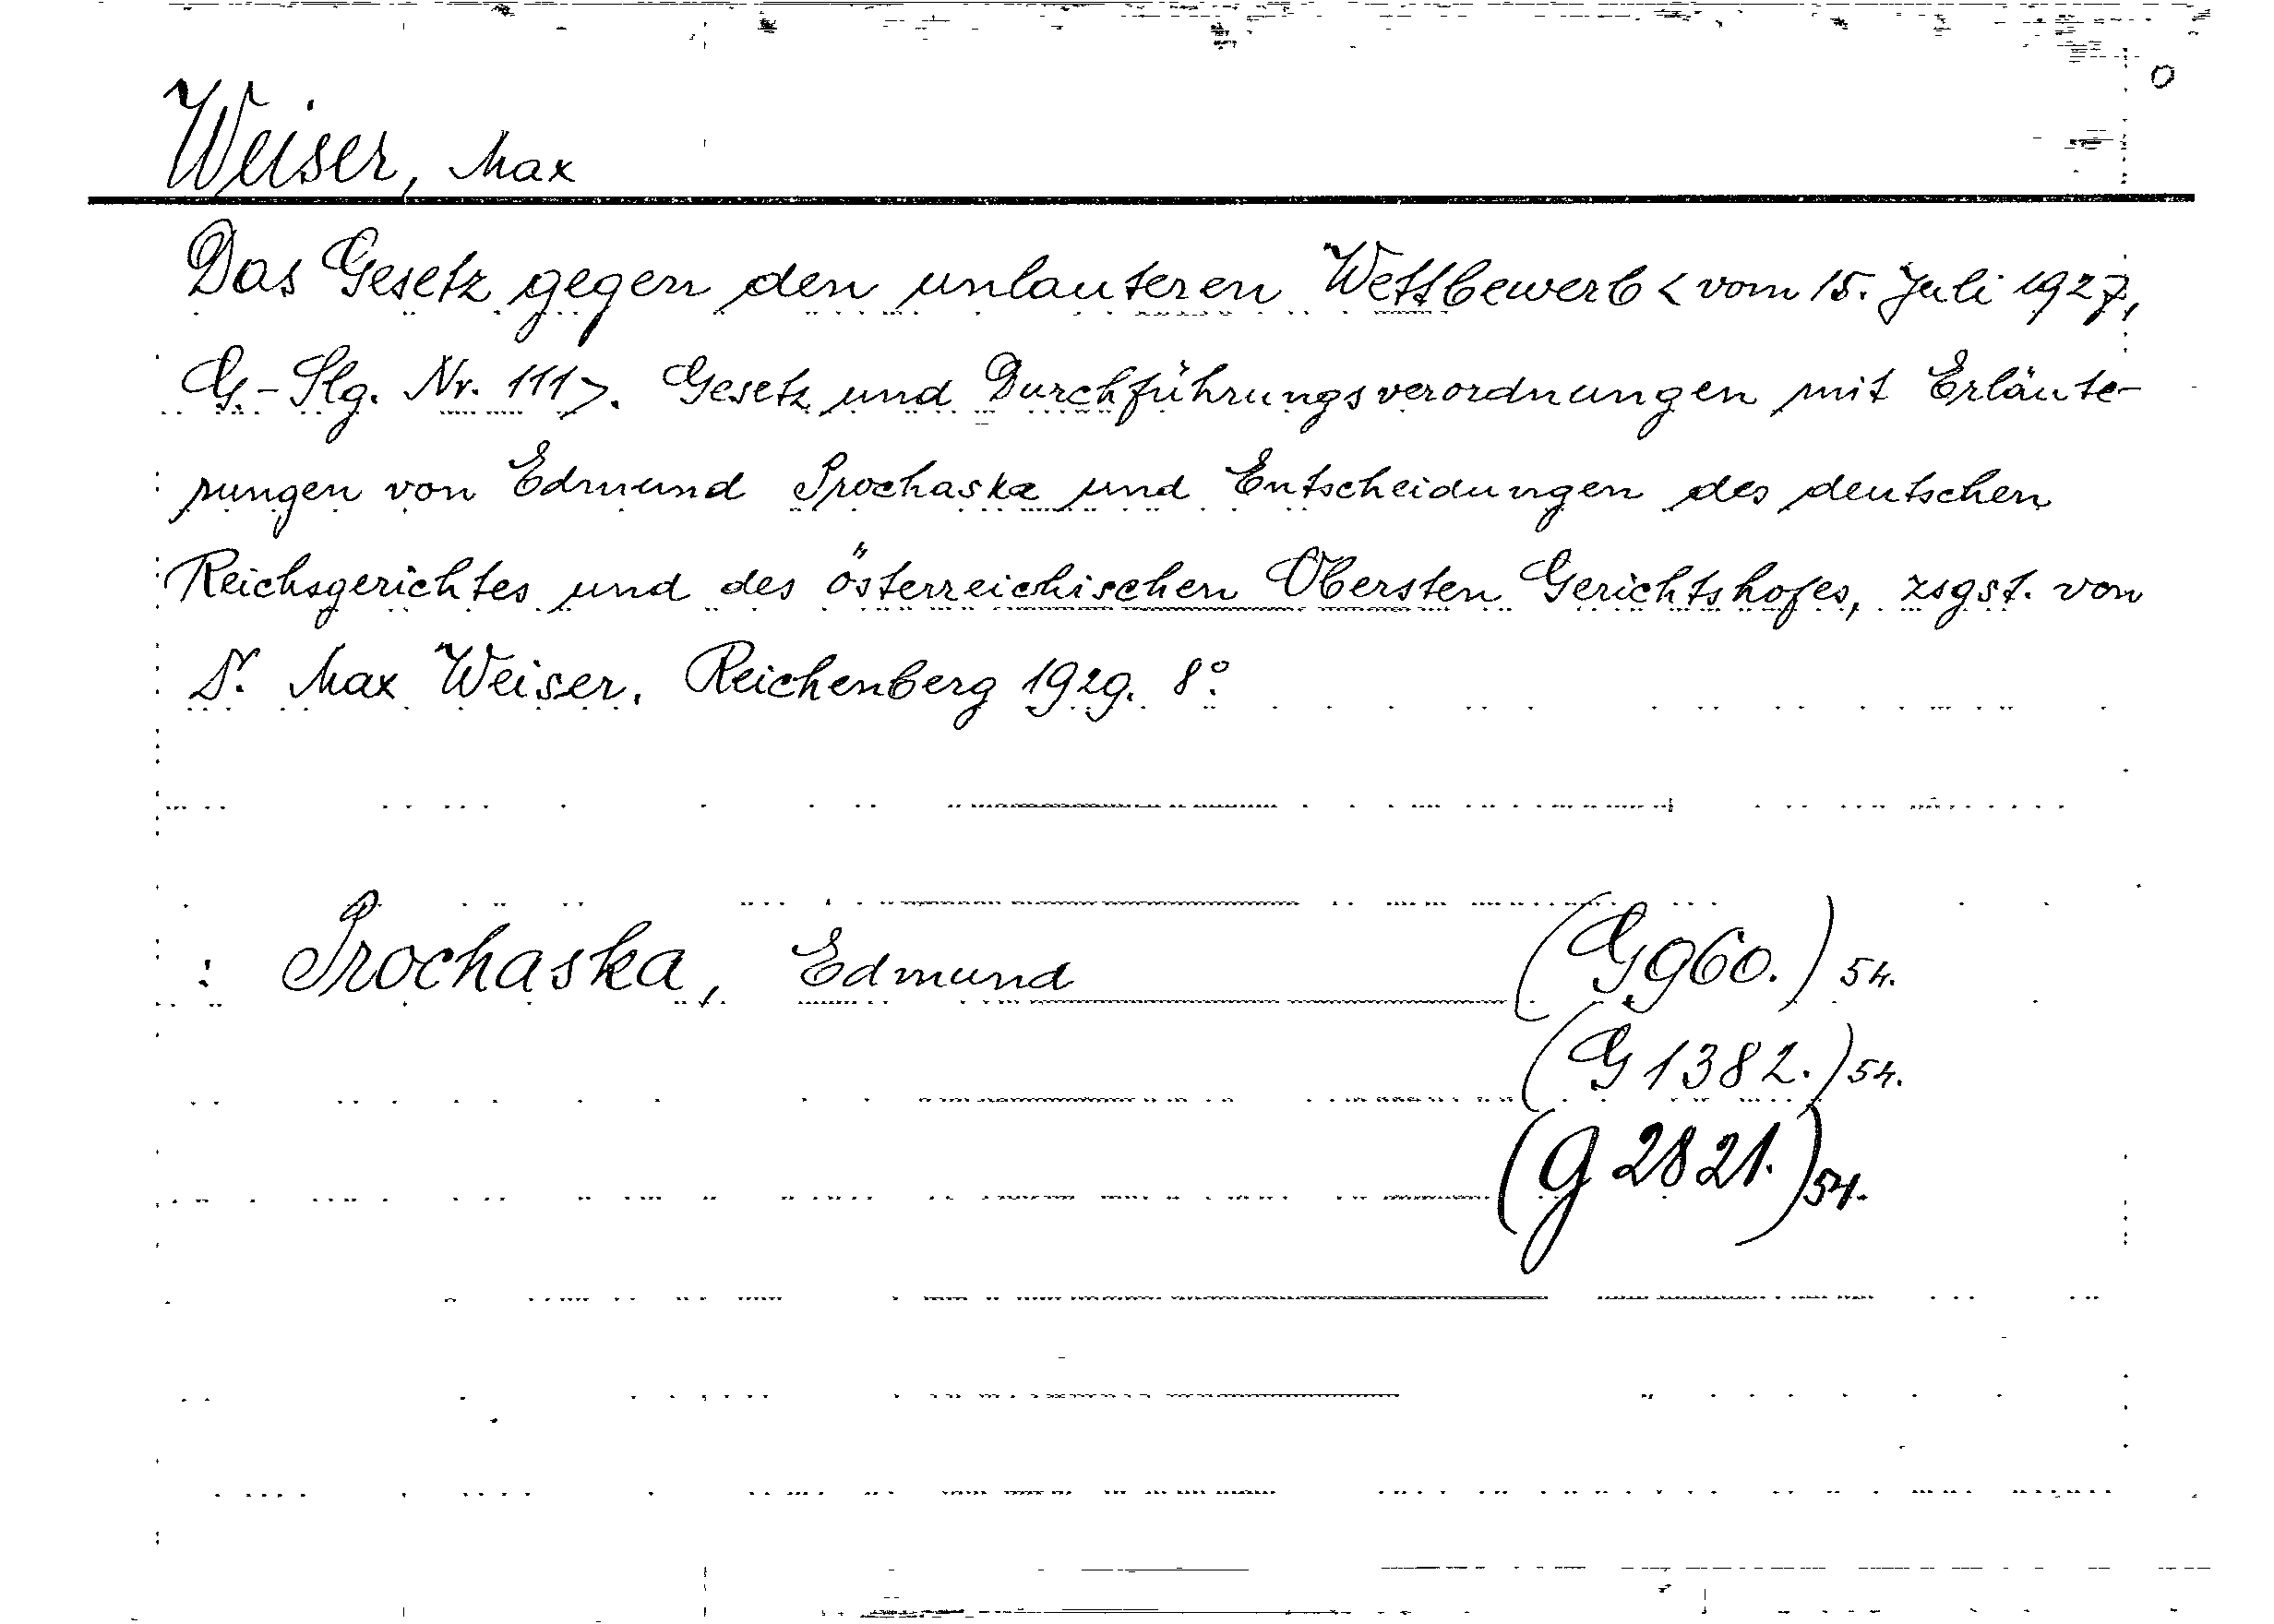 Weiser, Max
Das Gesetz gegen den unlauteren Wettbewerb < vom 15. Juli 1927,
G.-Slg. Nr. 111>. Gesetz und Durchführungsverordnungen mit Erläute-
rungen von Edmund Prochaska und Entscheidungen des deutschen
Reichsgerichtes und des österreichischen Obersten Gerichtshofes, zsgst. von
Dr. Max Weiser. Reichenberg 1929. 8°.
: Prochaska, Edmund (G 960.) 54.
(G 1382.) 54.
(G 2821.) 54.